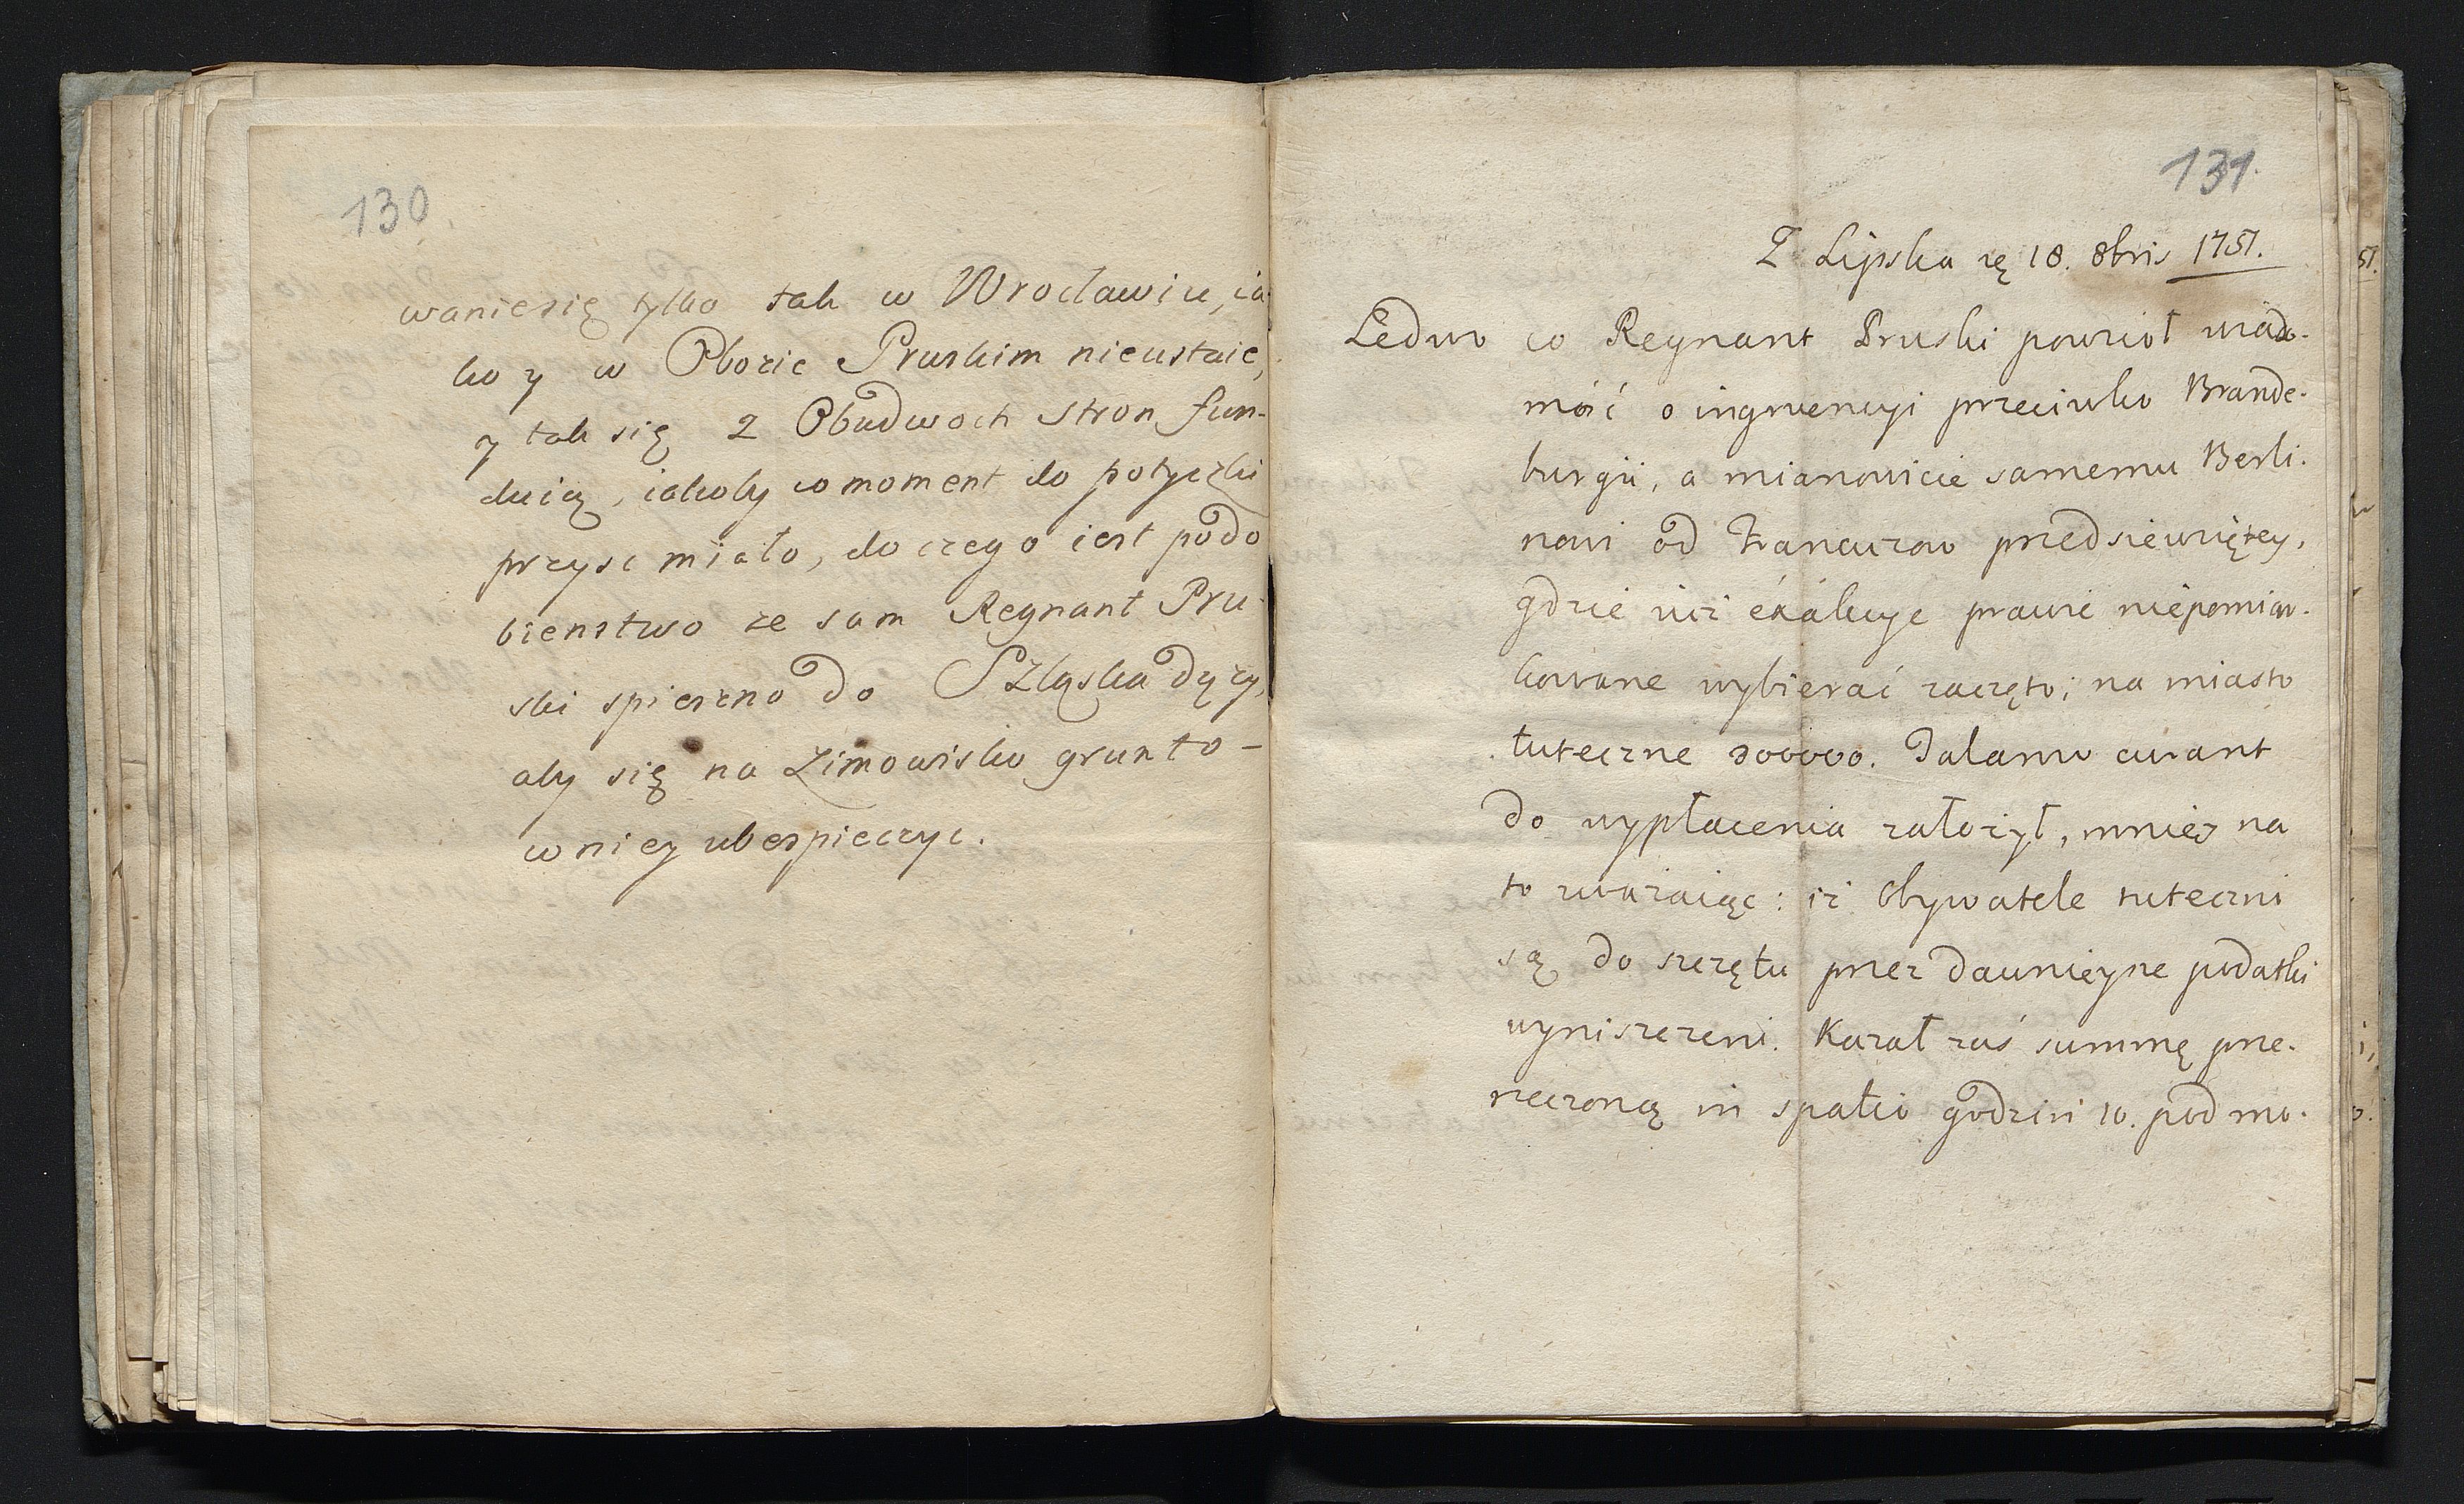 130
waniesię tylko tak w Wrocławiu, ia-
ko y w Obozie Pruskim nieustaie,
y tak się z Obudwoch stron fun-
duią, iakoby co moment do potyczki
przysc miało, do czego iest podo
bienstwo ze sam Regnant Pru-
ski spieszno do Szląska dązy,
aby się na Zimowisko grunto-
wniey ubespieczyc.
131.
Z Lipska 18. 8bris 1757.
Ledwo co Regnant Pruski powziół wiado-
mość o ingruencyi przeciwko Brande-
burgii, a mianowicie samemu Berli-
nowi od Francuzow przedsiewziętey,
gdzie iuż exakcye prawie niepomiar-
kowane wybierać zaczęto; na miasto
tuteczne 300000. Talarow curant
do wypłacenia założył, mniey na
to uważaiąc: iż Obywatele tuteczni
są do szczętu przez dawnieysze podatki
wyniszczeni. Kazał zaś summę prze-
rzeczoną in spatio godzin 10. pod mo-